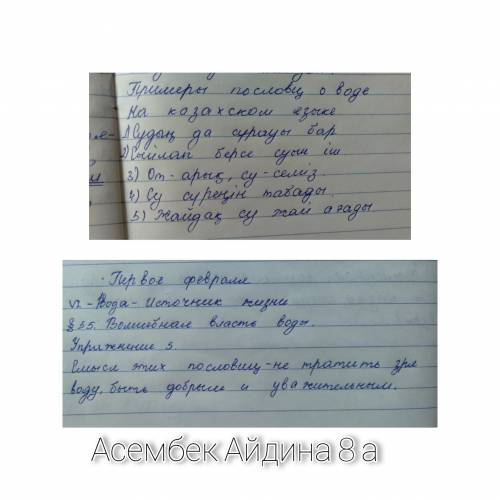 Примеры пословиц о воде
На казахском языке
1) Судың да сұрауы бар
2) Сыйлап берсе суын іш
3) От-арық, су-семіз.
4) Су сүреңін табады.
5) Жайдақ су жай ағады.
Первое февраля
VI.-Вода-Источник жизни
§ 55. Волшебная власть воды.
Упражнение 5.
Смысл этих пословиц-не тратить зря
воду, быть добрым и уважительным.
Асембек Айдина 8 а